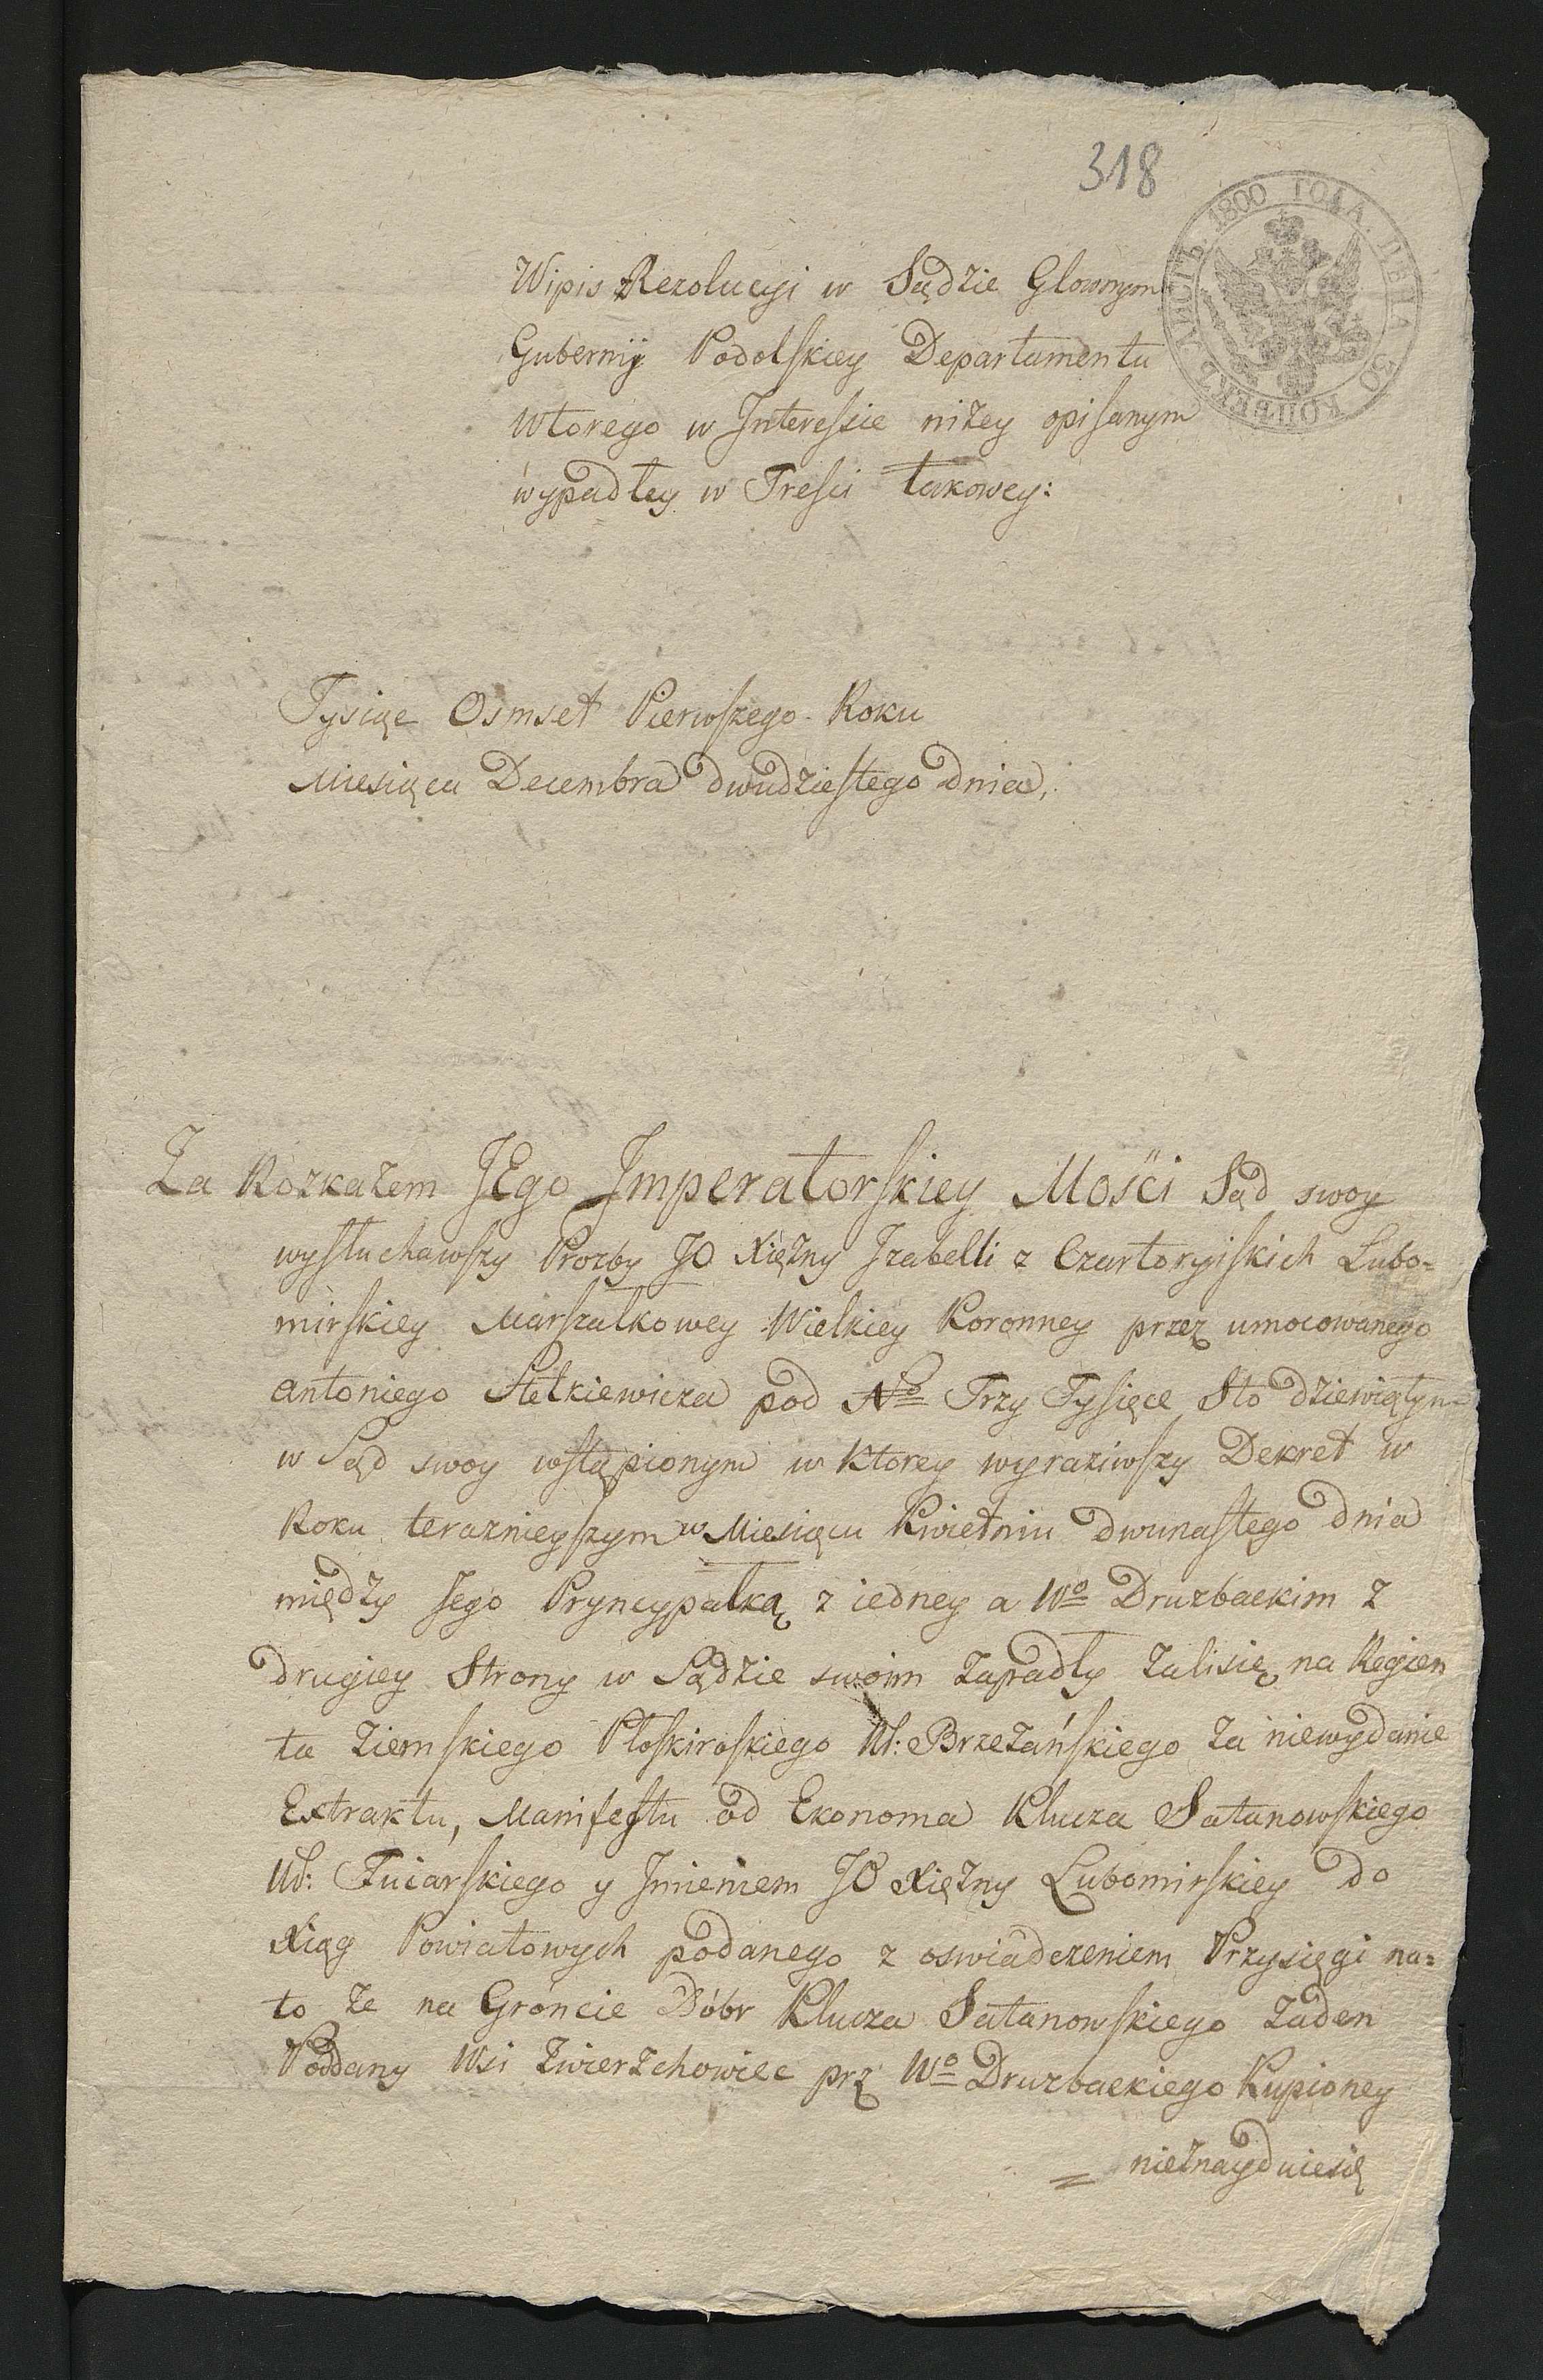 318
1800 ГОДА. ЦѢНА 30 КОПѢЕКЪ
Wipis Rezolucyi w Sądzie Glownym
Gubernij Podolskiey Departamentu
Wtorego w Interessie niżey opisanym
wypadłey w Tresci takowey:
Tysiąc Osmset Pierwszego Roku
Miesiąca Decembra dwudziestego dnia,
Za Rozkazem JEgo Imperatorskiey Mości Sąd swoy
wysłuchawszy Prozby JO Xiężny Izabelli z Czartoryiskich Lubo=
mirskiey Marszałkowey Wielkiey Koronney przez umocowanego
Antoniego Stetkiewicza pod No Trzy Tysiące Sto dziewiątym
w Sąd swoy wstąpionym w Ktorey wyraziwszy Dekret w
Roku teraznieyszym w Miesiącu Kwietniu dwunastego dnia
między Jego Pryncypałką z iedney a Wo Druzbackim z
drugiey Strony w Sądzie swoim zapadły żalisię na Regien
ta Ziemskiego Płoskiroskiego Ur: Brzeżańskiego za niewydanie
Extraktu, Manifestu od Ekonoma Klucza Satanowskiego
Ur: Fuiarskiego y Jmieniem JO Xiężny Lubomirskiey do
Xiąg Powiatowych podanego z oswiadczeniem Przysięgi na=
to że na Gróncie Dóbr Klucza Satanowskiego żaden
Poddany Wsi Zwierzchowiec prz Wo Druzbackiego Kupioney
= nieznayduiesię